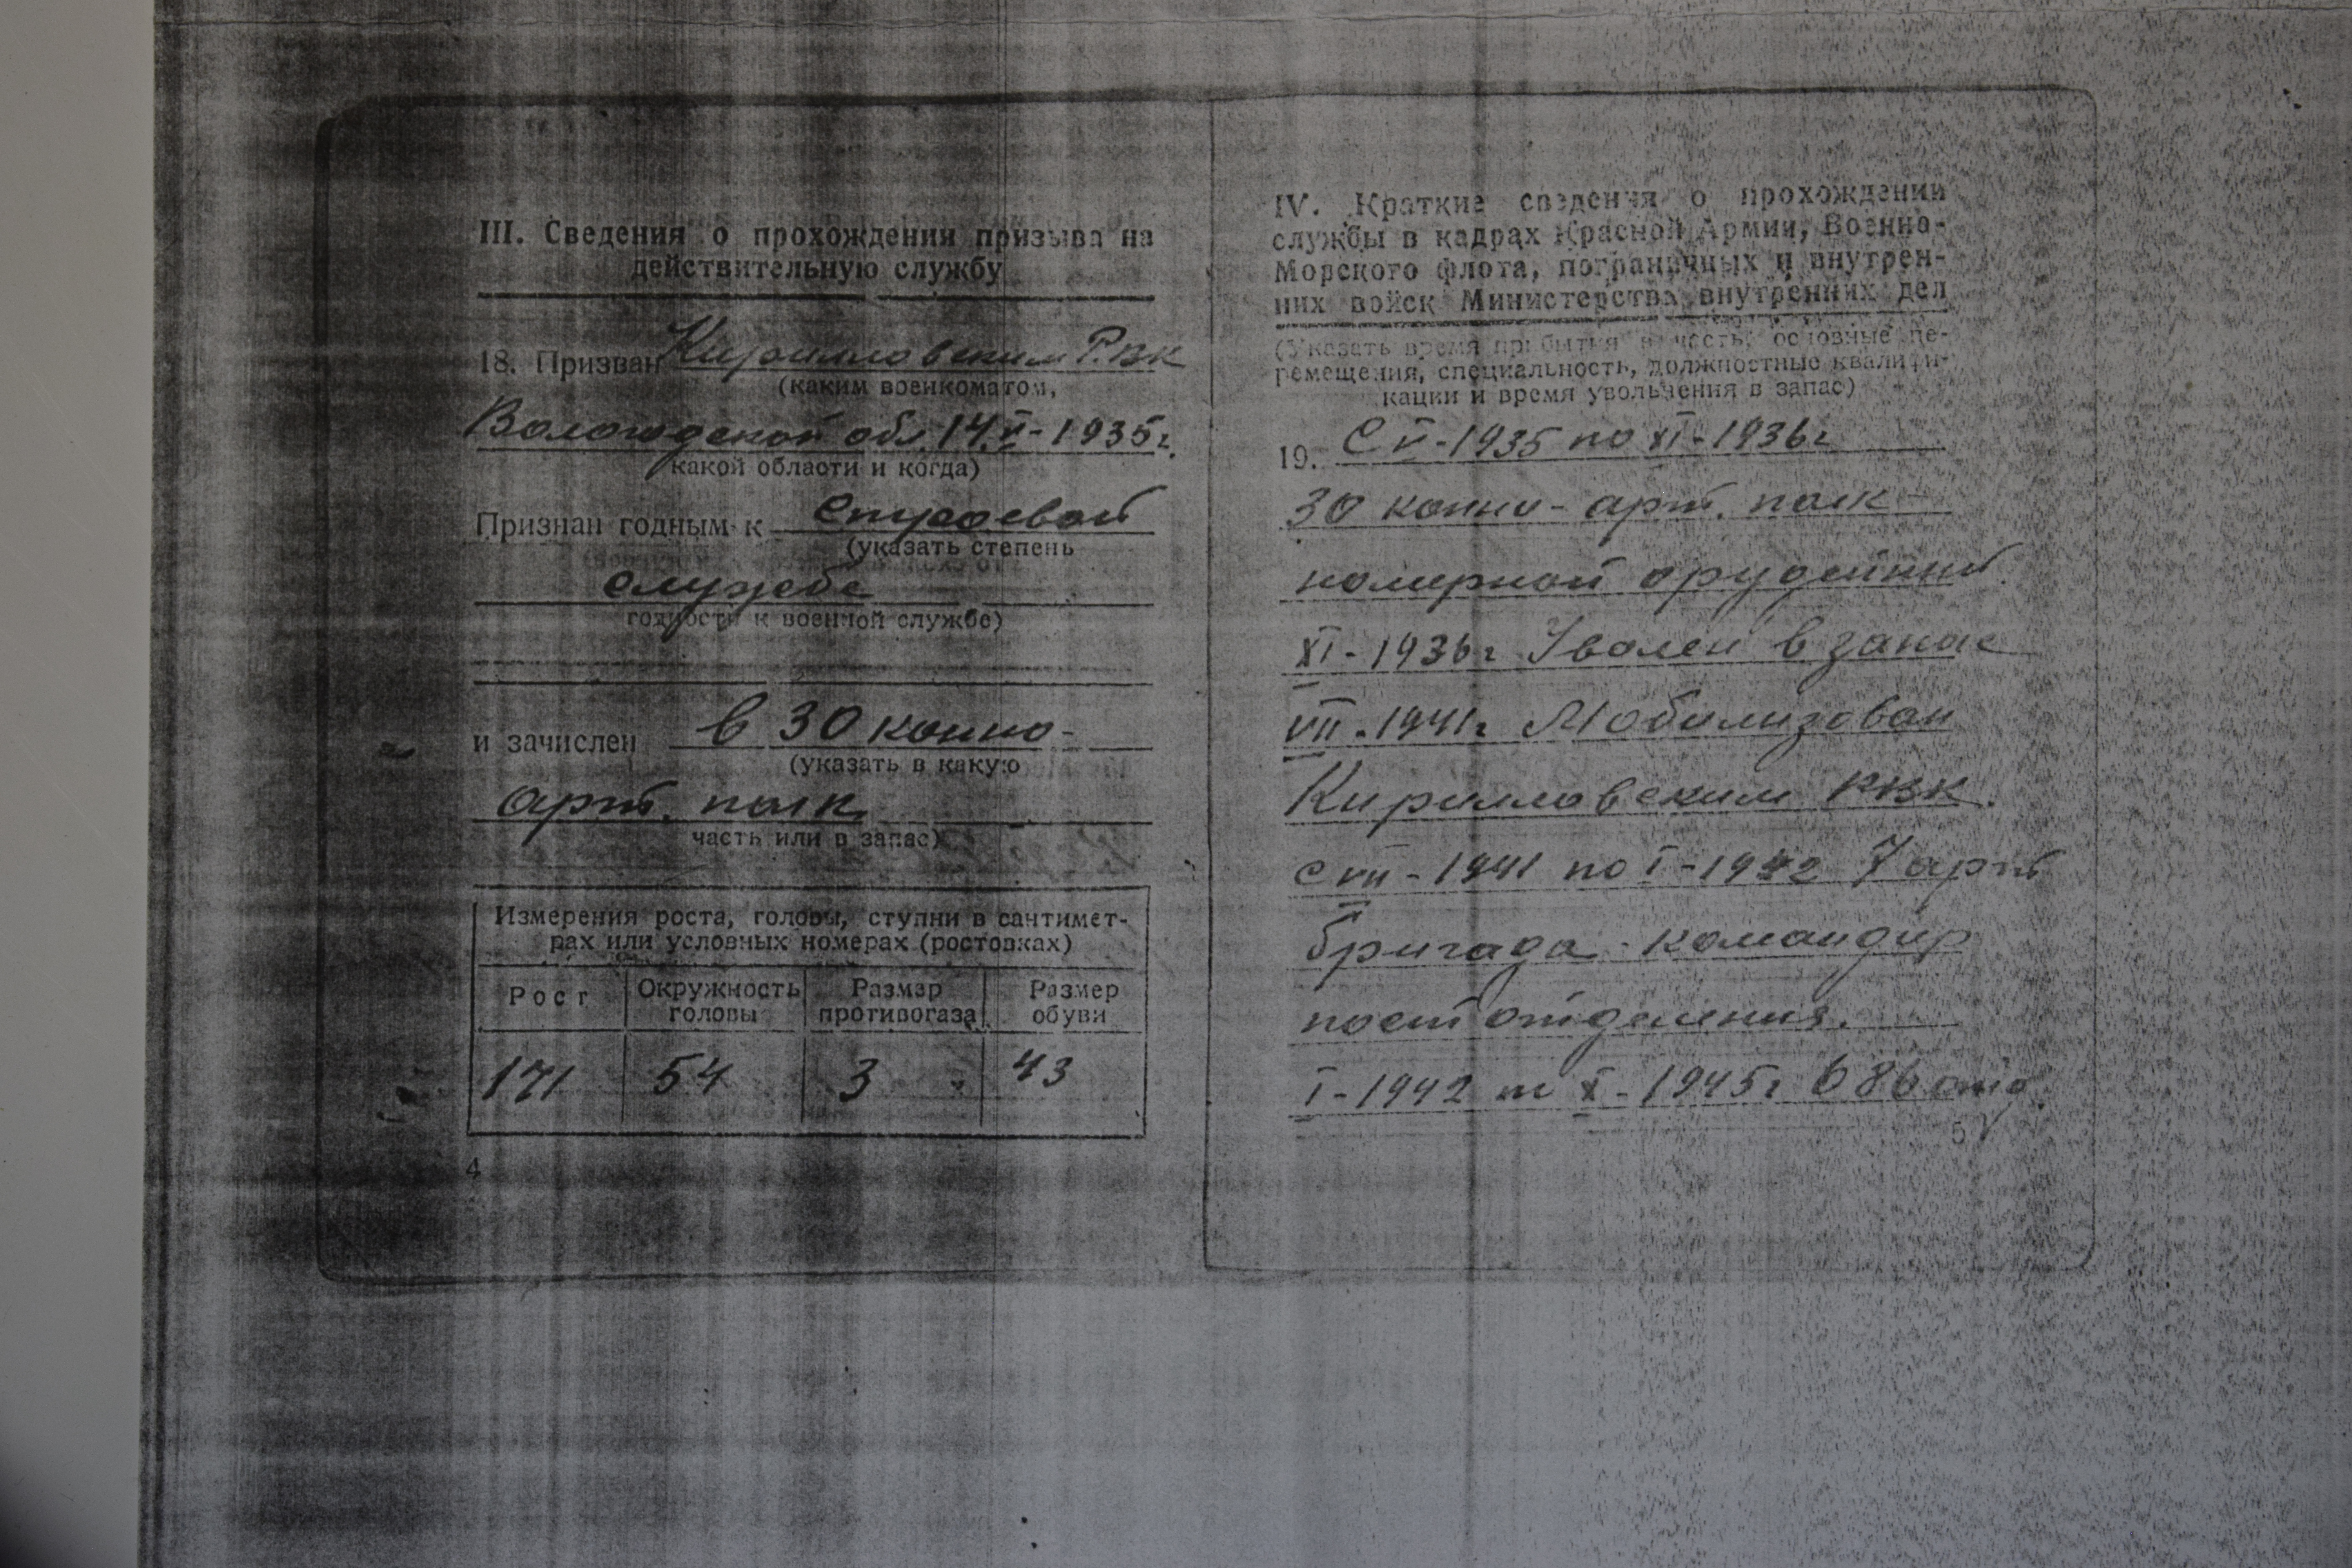 III. Сведения о прохождении призыва на
действительную службу
18. Призван Кирилловским Р.ВК
(каким военкоматом,
Вологодской обл. 14.V-1935г.
какой области и когда)
Признан годным к строевой
(указать степень
службе
годности к военной службе)
и зачислен в 30 конно-
(указать в какую
арт. полк.
часть или в запас)
Измерения роста, головы, ступни в сантимет-
рах или условных номерах (ростовках)
Рост Окружность головы Размер противогаза Размер обуви
171 54 3 43
4
IV. Краткие сведения о прохождении
службы в кадрах Красной Армии, Военно-
Морского флота, пограничных и внутрен-
них войск Министерства внутренних дел
(Указать время прибытия в часть, основные пе-
ремещения, специальность, должностные квалифи-
кации и время увольнения в запас)
19. С V-1935 по XI-1936г
30 конно-арт. полк-
номерной орудийный.
XI-1936г Уволен в запас
VII-1941г Мобилизован
Кирилловским РВК.
с VII-1941 по I-1942 7 арт
бригада - командир
отделения.
I-1942 по X-1945г 686 отд.
5